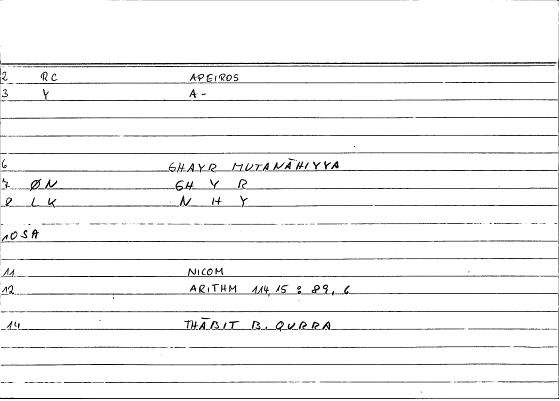 2 RC APEIROS
3 Y A-
6 GHAYR MUTANĀHIYYA
7 ØN GH Y R
8 LK N H Y
10 SA
11 NICOM
12 ARITHM 114,15 : 89,6
14 THĀBIT B. QURRA